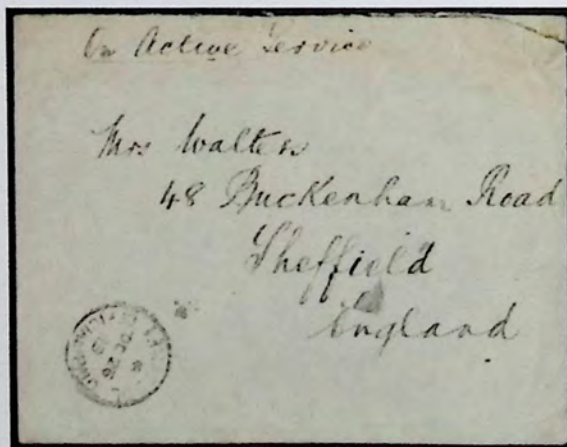 On Active Service
Mrs Walters
48 Buckenham Road
Sheffield
England